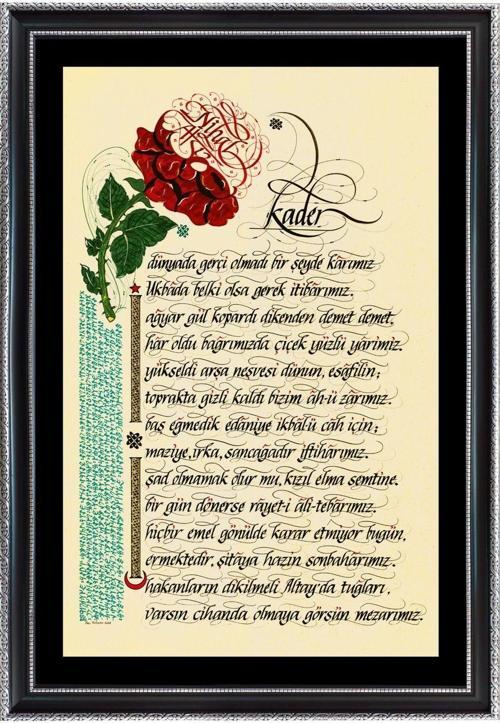 Nihal
kader
dünyada gerçi olmadı bir şeyde kârımız
Ukbâda belki olsa gerek itibârımız.
ağyar gül kopardı dikenden demet demet,
hâr oldu bağrımızda çiçek yüzlü yârimiz.
yükseldi arşa neşvesi dünun, esâfilin;
toprakta gizli kaldı bizim âh-ü zârımız.
baş eğmedik edâniye ikbâl-ü câh için;
maziye, ırka, sancağadır iftihârımız.
şad olmamak olur mu, kızıl elma semtine,
bir gün dönerse râyet-i âli-tebârımız.
hiçbir emel gönülde karar etmiyor bugün,
ermektedir, şitâya hazin sonbahârımız.
hakanların dikilmeli Altay'da tuğları,
varsın cihanda olmaya görsün mezarımız.